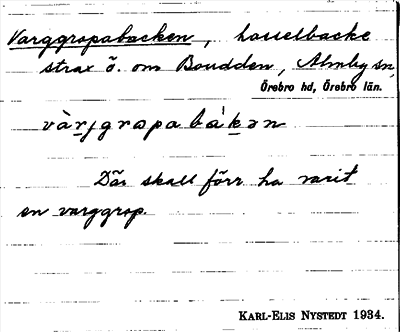 Varggropabacken, hasselbacke
strax ö. om Boudden, Almby sn,
Örebro hd, Örebro län.
vàrjgropabákən
Där skall förr ha varit
en varggrop.
KARL-ELIS NYSTEDT 1934.